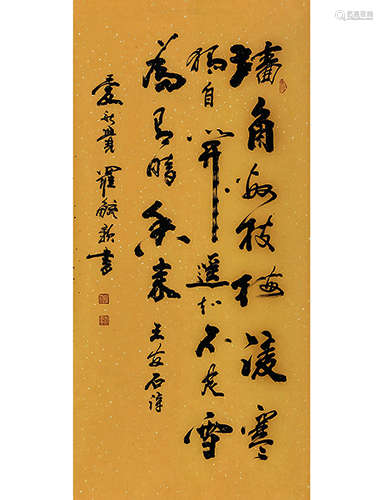 墻角數枝梅凌寒
獨自開遥知不是雪
為有暗香来 王安石詩
愛新覺羅毓書